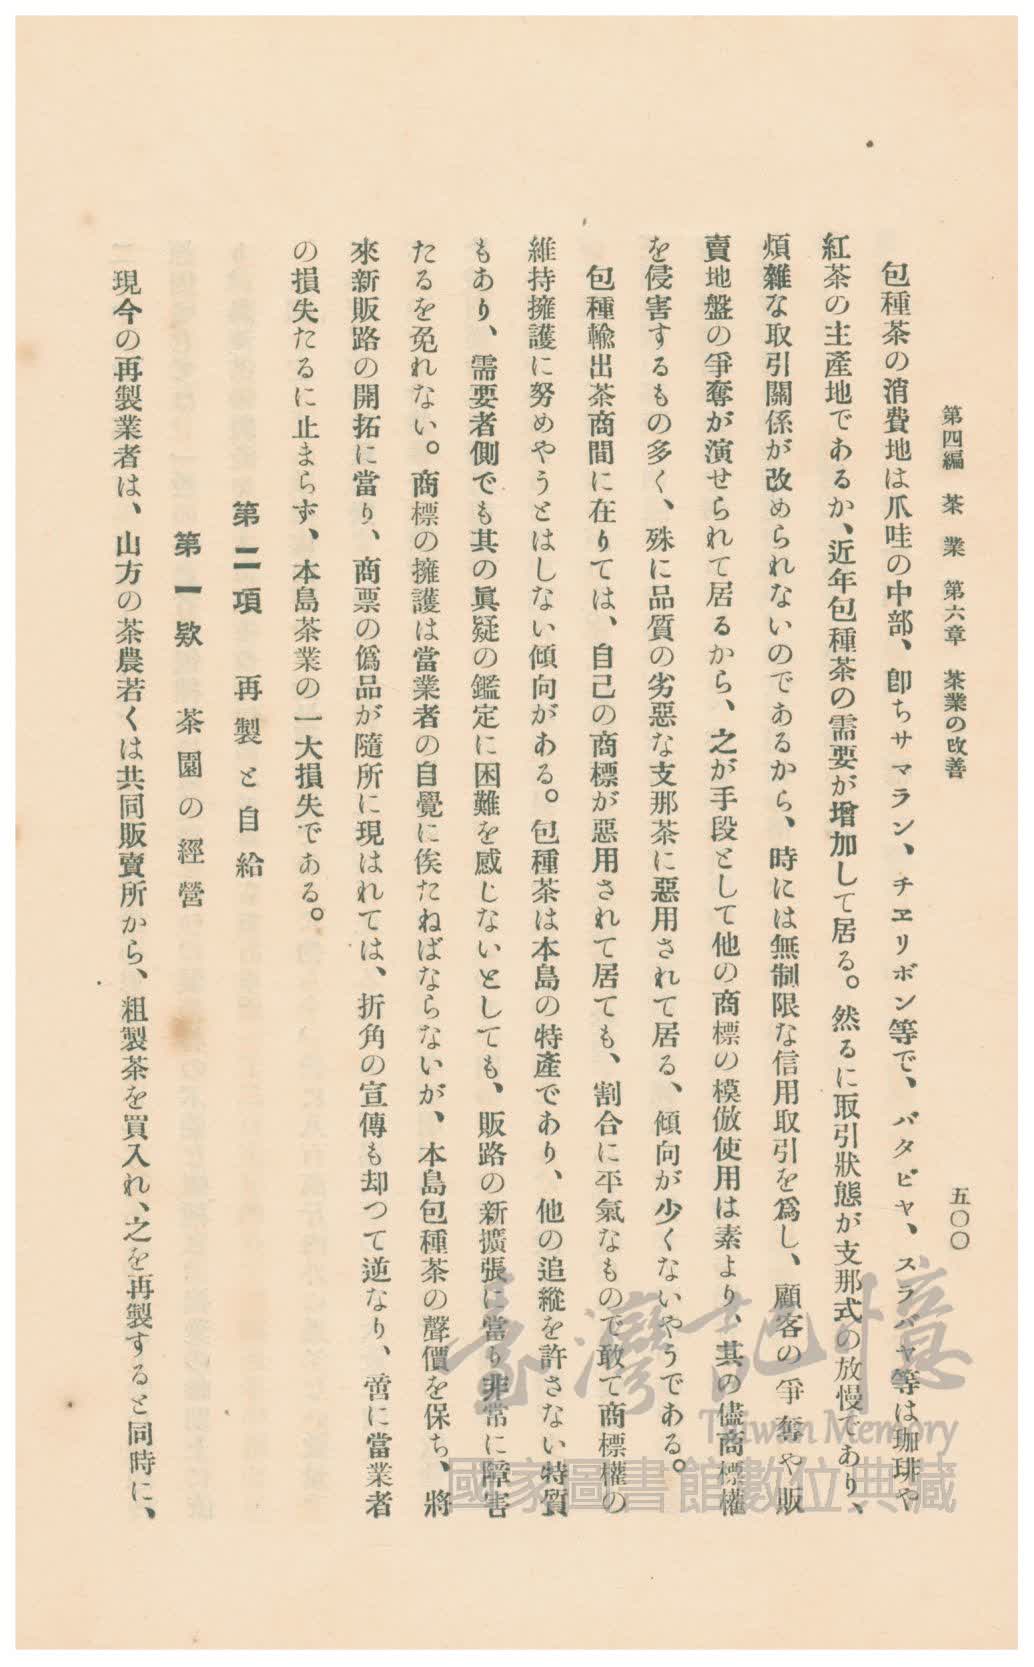 第四編 茶業 第六章 茶業の改善
五〇〇
包種茶の消費地は爪哇の中部、卽ちサマラン、チエリボン等で、バタビヤ、スラバヤ等は珈琲や
紅茶の主產地であるか、近年包種茶の需要が增加して居る。然るに取引狀態が支那式の放慢であり、
煩雜な取引關係が改められないのであるから、時には無制限な信用取引を爲し、顧客の爭奪や販
賣地盤の爭奪が演せられて居るから、之が手段として他の商標の模倣使用は素より、其の儘商標權
を侵害するもの多く、殊に品質の劣惡な支那茶に惡用されて居る、傾向が少くないやうである。
包種輸出茶商間に在りては、自己の商標が惡用されて居ても、割合に平氣なもので敢て商標權の
維持擁護に努めやうとはしない傾向がある。包種茶は本島の特產であり、他の追縱を許さない特質
もあり、需要者側でも其の眞疑の鑑定に困難を感じないとしても、販路の新擴張に當り非常に障害
たるを免れない。商標の擁護は當業者の自覺に俟たねばならないが、本島包種茶の聲價を保ち、將
來新販路の開拓に當り、商票の僞品が隨所に現はれては、折角の宣傳も却つて逆なり、啻に當業者
の損失たるに止まらず、本島茶業の一大損失である。
第二項 再製と自給
第一欵 茶園の經營
現今の再製業者は、山方の茶農若くは共同販賣所から、粗製茶を買入れ、之を再製すると同時に、
臺灣記憶
Taiwan Memory
國家圖書館數位典藏